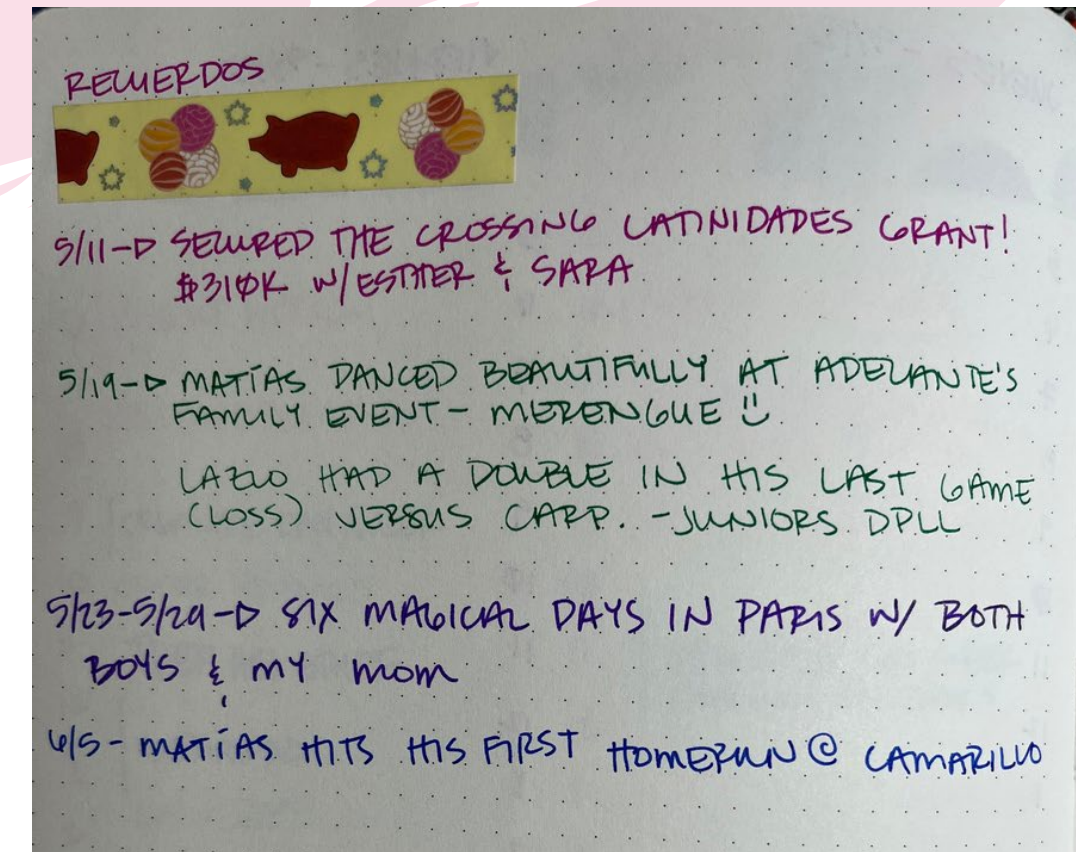 RECUERDOS
5/11-> SECURED THE CROSSING LATINIDADES GRANT!
$310K W/ESTHER & SARA
5/19-> MATÍAS DANCED BEAUTIFULLY AT ADELANTE'S
FAMILY EVENT - MERENGUE :)
LAZLO HAD A DOUBLE IN HIS LAST GAME
(LOSS) VERSUS CARP. -JUNIORS DPLL
5/23-5/29-> SIX MAGICAL DAYS IN PARIS W/ BOTH
BOYS & MY MOM
6/5 - MATÍAS HITS HIS FIRST HOMERUN @ CAMARILLO